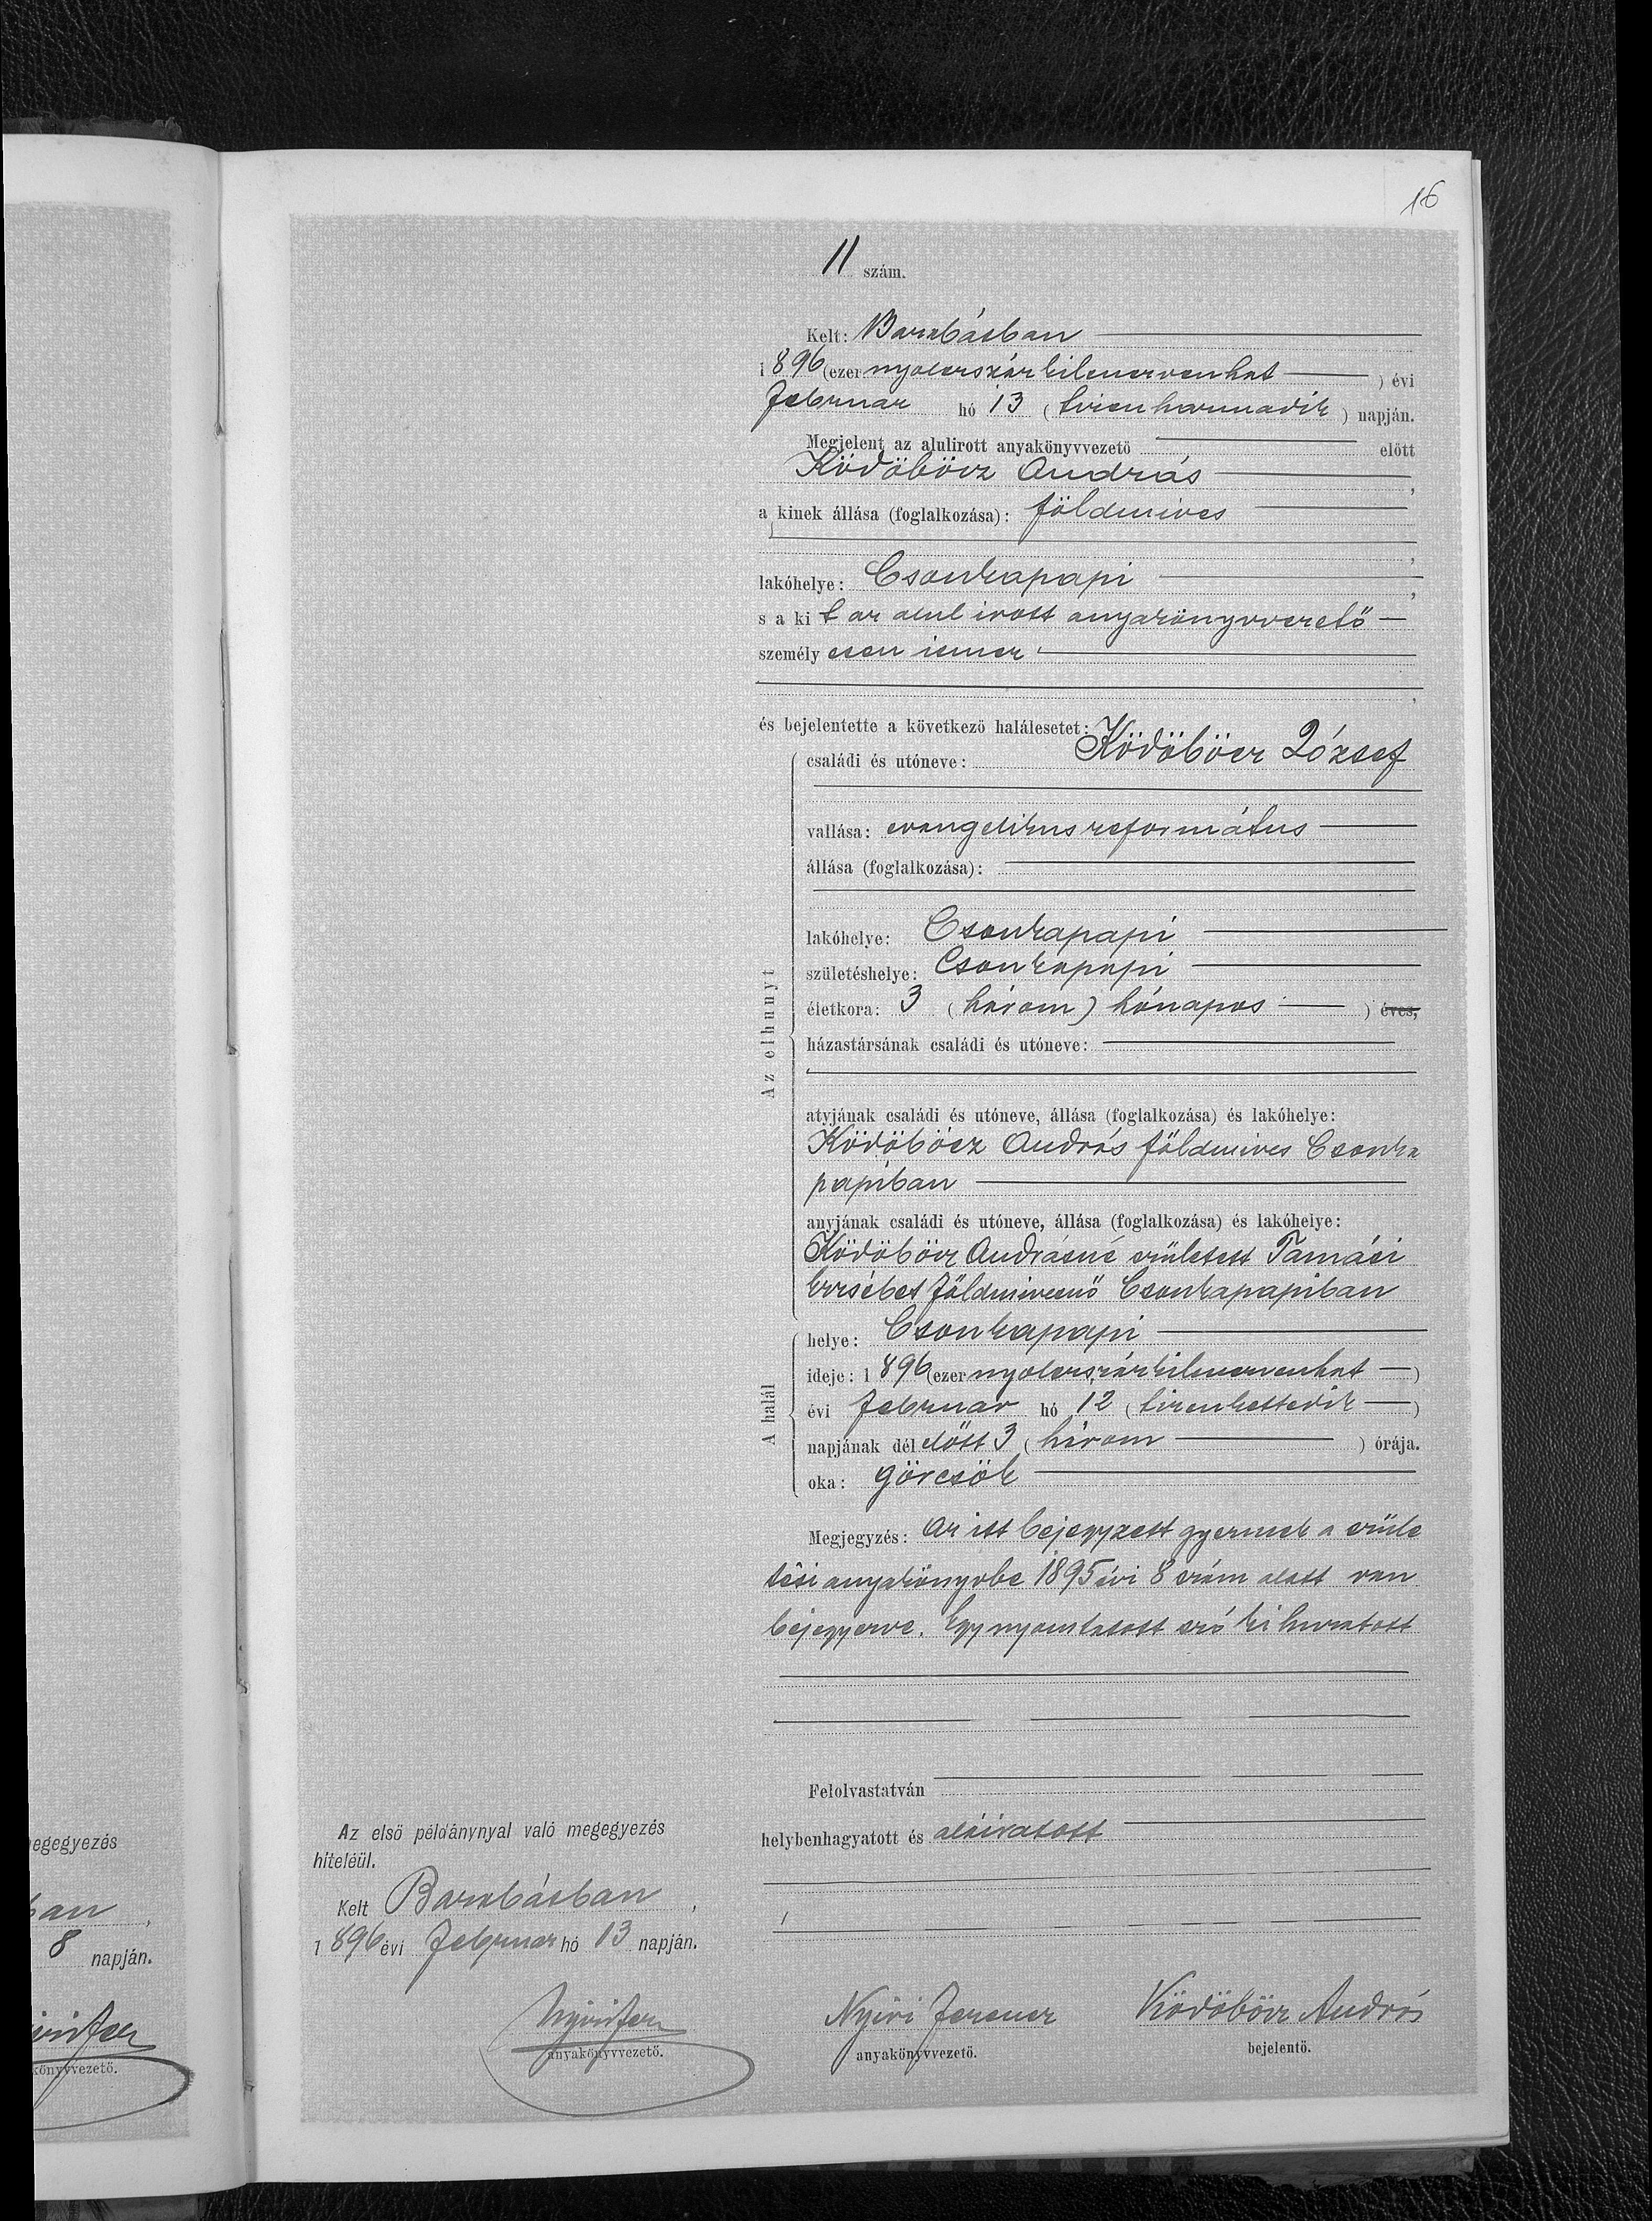 16
11 szám.
Kelt: Barabásban
1896 (ezer nyolczszáz kilenczvenhat) évi
Februar hó 13 (tizenharmadik) napján.
Megjelent az alulirott anyakönyvvezető előtt
Ködöböcz András,
a kinek állása (foglalkozása): földmives
,
lakóhelye: Csonkapapi,
s a kit az alul irott anyakönyvvezető
személyesen ismer
,
és bejelentette a következő halálesetet:
családi és utóneve: Ködöböcz József
vallása: evangelikus református
állása (foglalkozása):
lakóhelye: Csonkapapi
születéshelye: Csonkapapi
életkora: 3 (három) hónapos ) éves,
házastársának családi és utóneve:
Az elhunyt
atyjának családi és utóneve, állása (foglalkozása) és lakóhelye:
Ködöböcz András földmives Csonka
papiban
anyjának családi és utóneve, állása (foglalkozása) és lakóhelye:
Ködöböcz Andrásné született Tamási
Erzsébet földmivesnő Csonkapapiban
helye: Csonkapapi
ideje: 1896 (ezer nyolczszáz kilenczvenhat)
évi Februar hó 12 (tizenkettedik)
A halál
napjának délelőtt 3 (három) órája.
oka: görcsök
Megjegyzés: Az itt bejegyzett gyermek a szüle
tési anyakönyvbe 1895 évi 8 szám alatt van
bejegyezve. Egy nyomtatott szó kihuzatott
Felolvastatván
helybenhagyatott és aláiratott
Az első példánynyal való megegyezés
hiteléül.
Kelt Barabásban,
1896 évi Februar hó 13 napján.
Nyiri Fer
anyakönyvvezető.
Nyiri Ferencz
anyakönyvvezető.
Ködöböcz András
bejelentő.
egegyezés
ban,
8 napján.
könyvvezető.